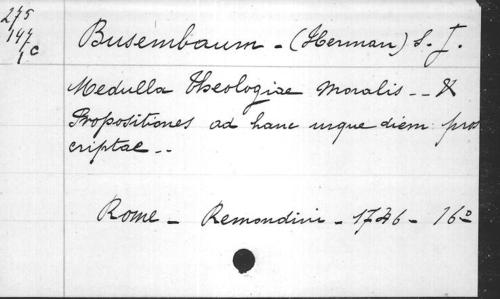 275
147
1c
Busembaum - (Herman) S. J.
Medulla Theologiae Moralis -- &
Propositiones ad hanc usque diem pros
criptae --
Rome - Remondini - 1746 - 16º